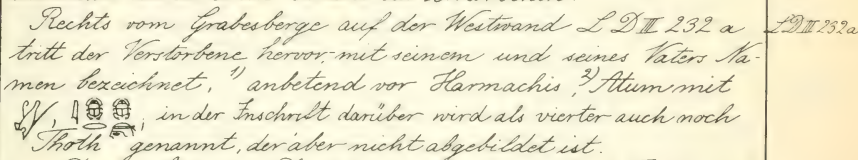 Rechts vom Grabesberge auf der Westwand L D III 232 a
L D III 232 a
tritt der Verstorbene hervor, mit seinem und seines Vaters Na-
men bezeichnet, 1) anbetend vor Harmachis, 2) Atum mit
in der Inschrift darüber wird als vierter auch noch
Thoth genannt, der aber nicht abgebildet ist.